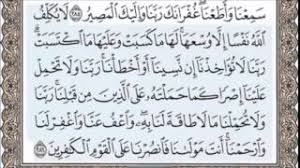 سَمِعْنَا وَأَطَعْنَا ۖ غُفْرَانَكَ رَبَّنَا وَإِلَيْكَ الْمَصِيرُ ٢٨٥ لَا يُكَلِّفُ
اللَّهُ نَفْسًا إِلَّا وُسْعَهَا ۚ لَهَا مَا كَسَبَتْ وَعَلَيْهَا مَا اكْتَسَبَتْ ۗ
رَبَّنَا لَا تُؤَاخِذْنَا إِن نَّسِينَا أَوْ أَخْطَأْنَا ۚ رَبَّنَا وَلَا تَحْمِلْ
عَلَيْنَا إِصْرًا كَمَا حَمَلْتَهُ عَلَى الَّذِينَ مِن قَبْلِنَا ۚ رَبَّنَا
وَلَا تُحَمِّلْنَا مَا لَا طَاقَةَ لَنَا بِهِ ۖ وَاعْفُ عَنَّا وَاغْفِرْ لَنَا
وَارْحَمْنَا ۚ أَنتَ مَوْلَانَا فَانصُرْنَا عَلَى الْقَوْمِ الْكَافِرِينَ ٢٨٦